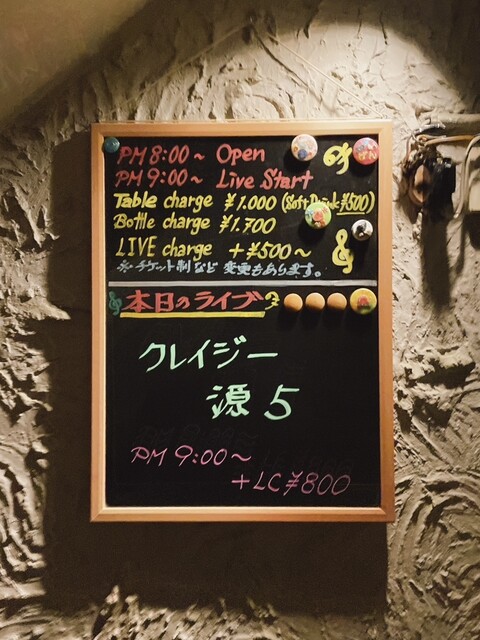 PM 8:00~ Open
PM 9:00~ Live Start
Table charge ¥1.000 (Soft Drink ¥500)
Bottle charge ¥1.700
LIVE charge +¥500~
※チケット制など変更もあります。
本日のライブ
クレイジー
源 5
PM 9:00~
+LC ¥800